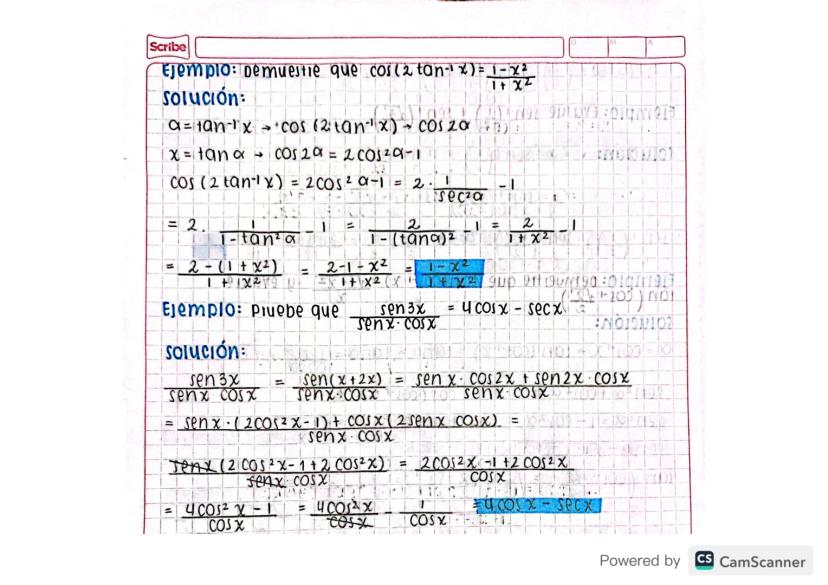 Scribe
Ejemplo: Demuestre que cos(2 tan⁻¹ x) = 1-x² / 1+x²
Solución:
α = tan⁻¹ x → cos (2 tan⁻¹ x) → cos 2α
x = tan α → cos 2α = 2cos²α-1
cos (2 tan⁻¹ x) = 2cos² α-1 = 2 · 1 / sec²α - 1
= 2 · 1 / 1 - tan² α - 1 = 2 / 1 - (tanα)² - 1 = 2 / 1 + x² - 1
= 2 - (1 + x²) / 1 + x² = 2-1-x² / 1+x² = 1-x² / 1+x²
Ejemplo: Pruebe que sen3x / senx · cosx = 4cosx - secx
Solución:
sen3x / senx cosx = sen(x+2x) / senx·cosx = sen x · cos2x + sen2x · cosx / senx · cosx
= senx · (2cos²x-1) + cosx (2senx cosx) / senx · cosx =
senx (2cos²x-1+2cos²x) / senx · cosx = 2cos²x -1+2cos²x / cosx
= 4cos²x - 1 / cosx = 4cos²x / cosx - 1 / cosx = 4cosx - secx
Powered by CS CamScanner